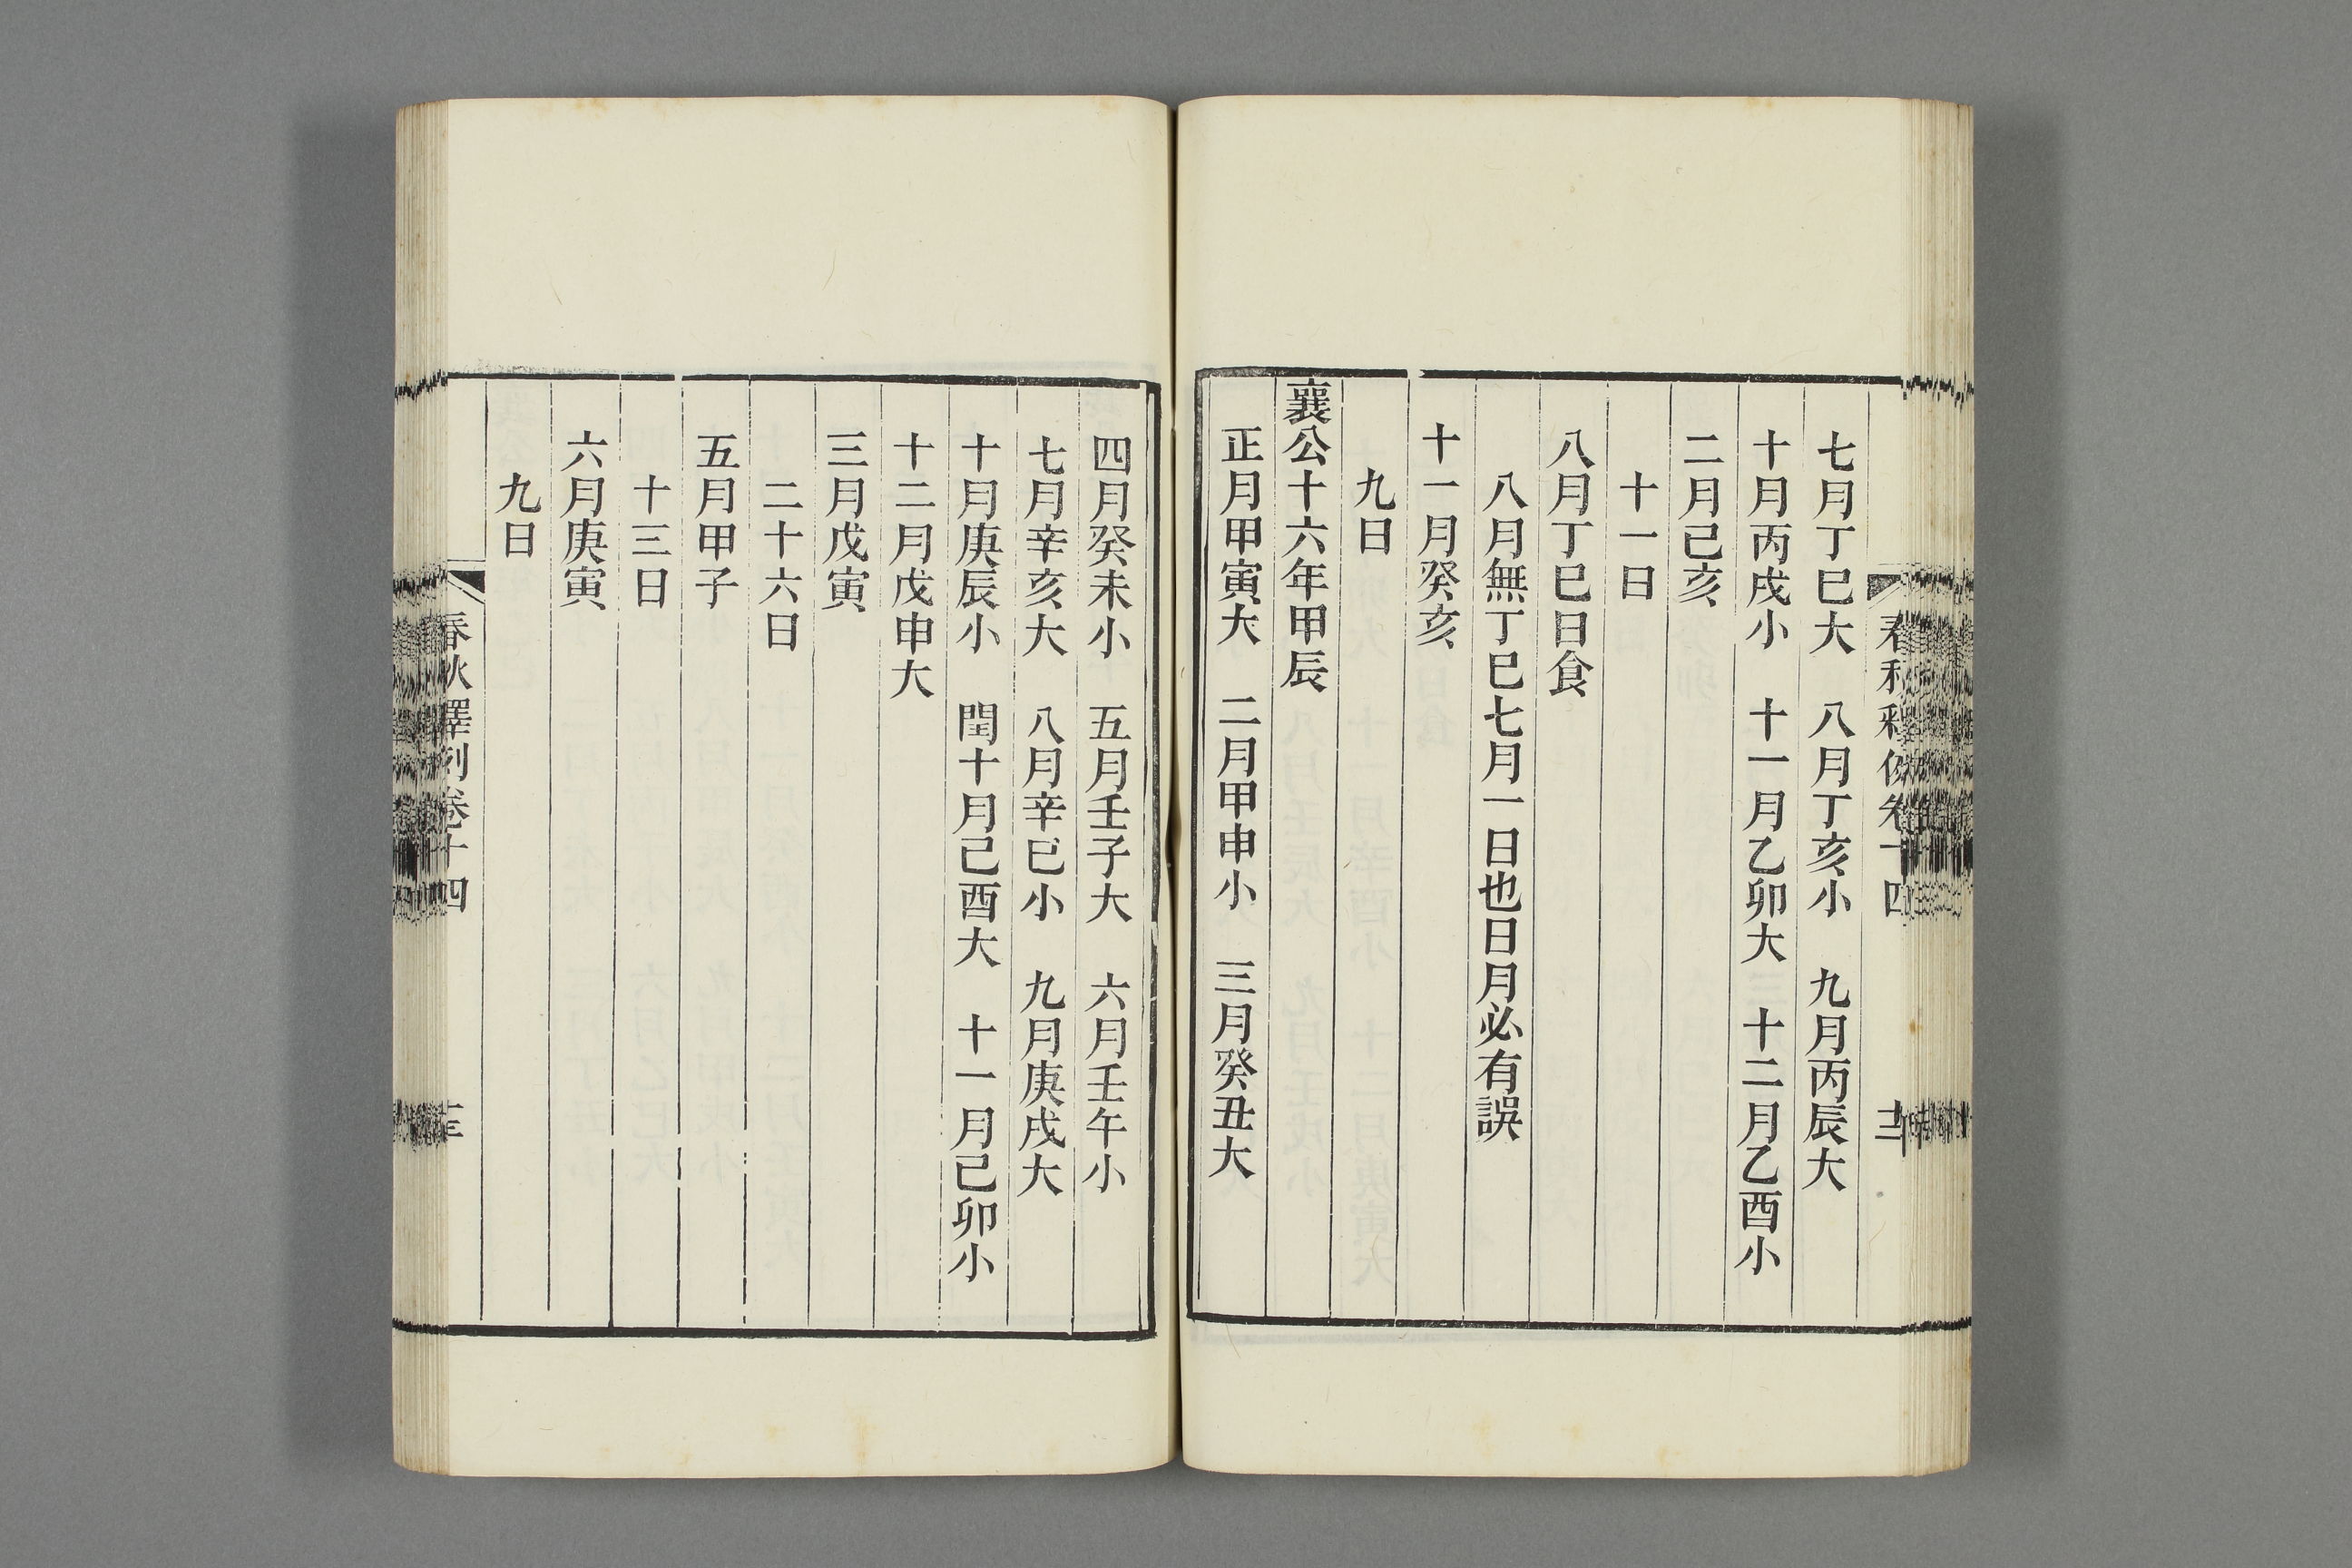 七月丁巳大　八月丁亥小　九月丙辰大
十月丙戌小　十一月乙卯大　十二月乙酉小
二月己亥
十一日
八月丁巳日食
八月無丁巳七月一日也日月必有誤
十一月癸亥
九日
襄公十六年甲辰
正月甲寅大　二月甲申小　三月癸丑大
四月癸未小　五月壬子大　六月壬午小
七月辛亥大　八月辛巳小　九月庚戌大
十月庚辰小　閏十月己酉大　十一月己卯小
十二月戊申大
三月戊寅
二十六日
五月甲子
十三日
六月庚寅
九日
春秋釋例卷十四